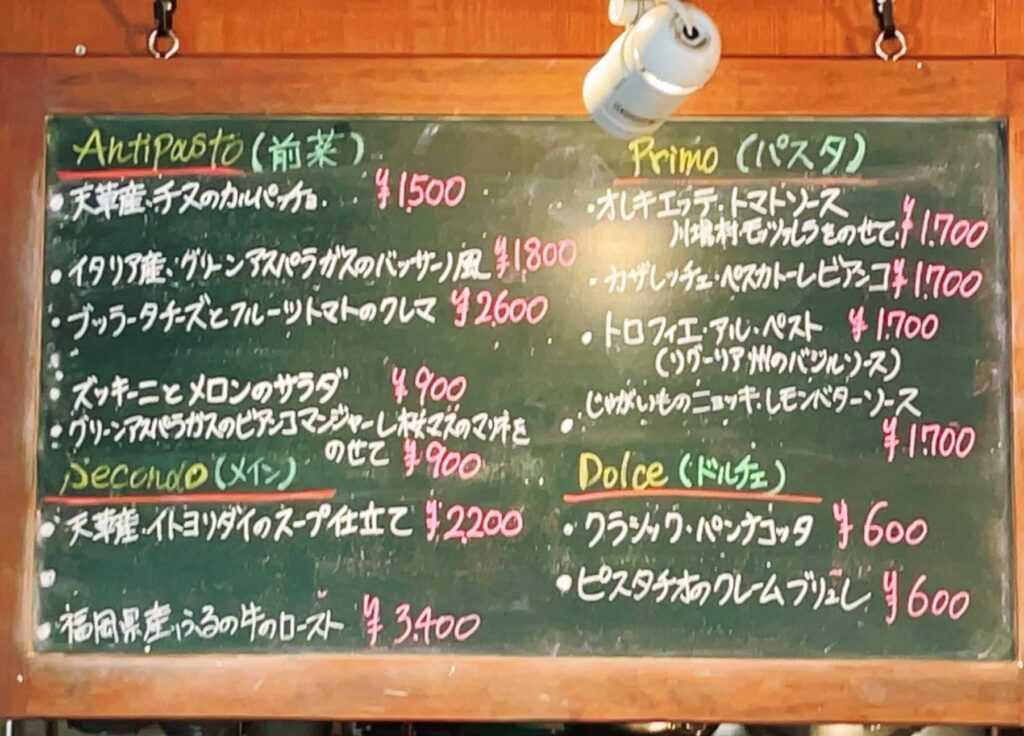 Antipasto (前菜)
・天草産・チヌのカルパッチョ ¥1,500
・イタリア産・グリーンアスパラガスのバッサーノ風 ¥1800
・ブッラータチーズとフルーツトマトのクレマ ¥2600
・ズッキーニとメロンのサラダ ¥900
・グリーンアスパラガスのビアンコマンジャーレ 桜マスのマリネを
のせて ¥900
Secondo (メイン)
・天草産・イトヨリダイのスープ仕立て ¥2,200
・福岡県産・うるの牛のロースト ¥3,400
Primo (パスタ)
・オレキエッテ・トマトソース
川場村モッツァレラをのせて ¥1,700
・カザレッチェ・ペスカトーレビアンコ ¥1,700
・トロフィエ・アル・ペスト ¥1,700
(リグーリア州のバジルソース)
・じゃがいものニョッキ・レモンバターソース
¥1,700
Dolce (ドルチェ)
・クラシック・パンナコッタ ¥600
・ピスタチオのクレームブリュレ ¥600